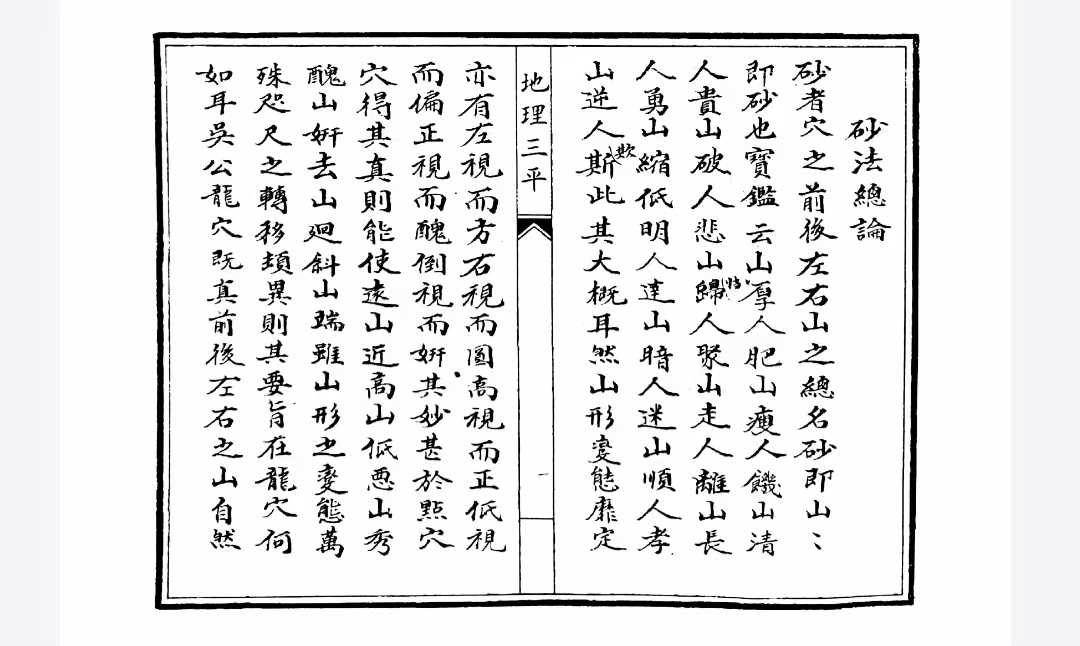 砂法總論
砂者穴之前後左右山之總名砂即山〻
即砂也寶鑑云山厚人肥山瘦人饑山清
人貴山破人悲山歸人聚山走人離山長
人勇山縮低明人達山暗人迷山順人孝
山逆人欺斯此其大概耳然山形变態靡定
地理三平
一
亦有左視而方右視而圓高視而正低視
而偏正視而醜倒視而妍其妙甚於點穴
穴得其真則能使遠山近高山低惡山秀
醜山妍去山迴斜山端雖山形之变態萬
殊咫尺之轉移頓異則其要旨在龍穴何
如耳吳公龍穴既真前後左右之山自然